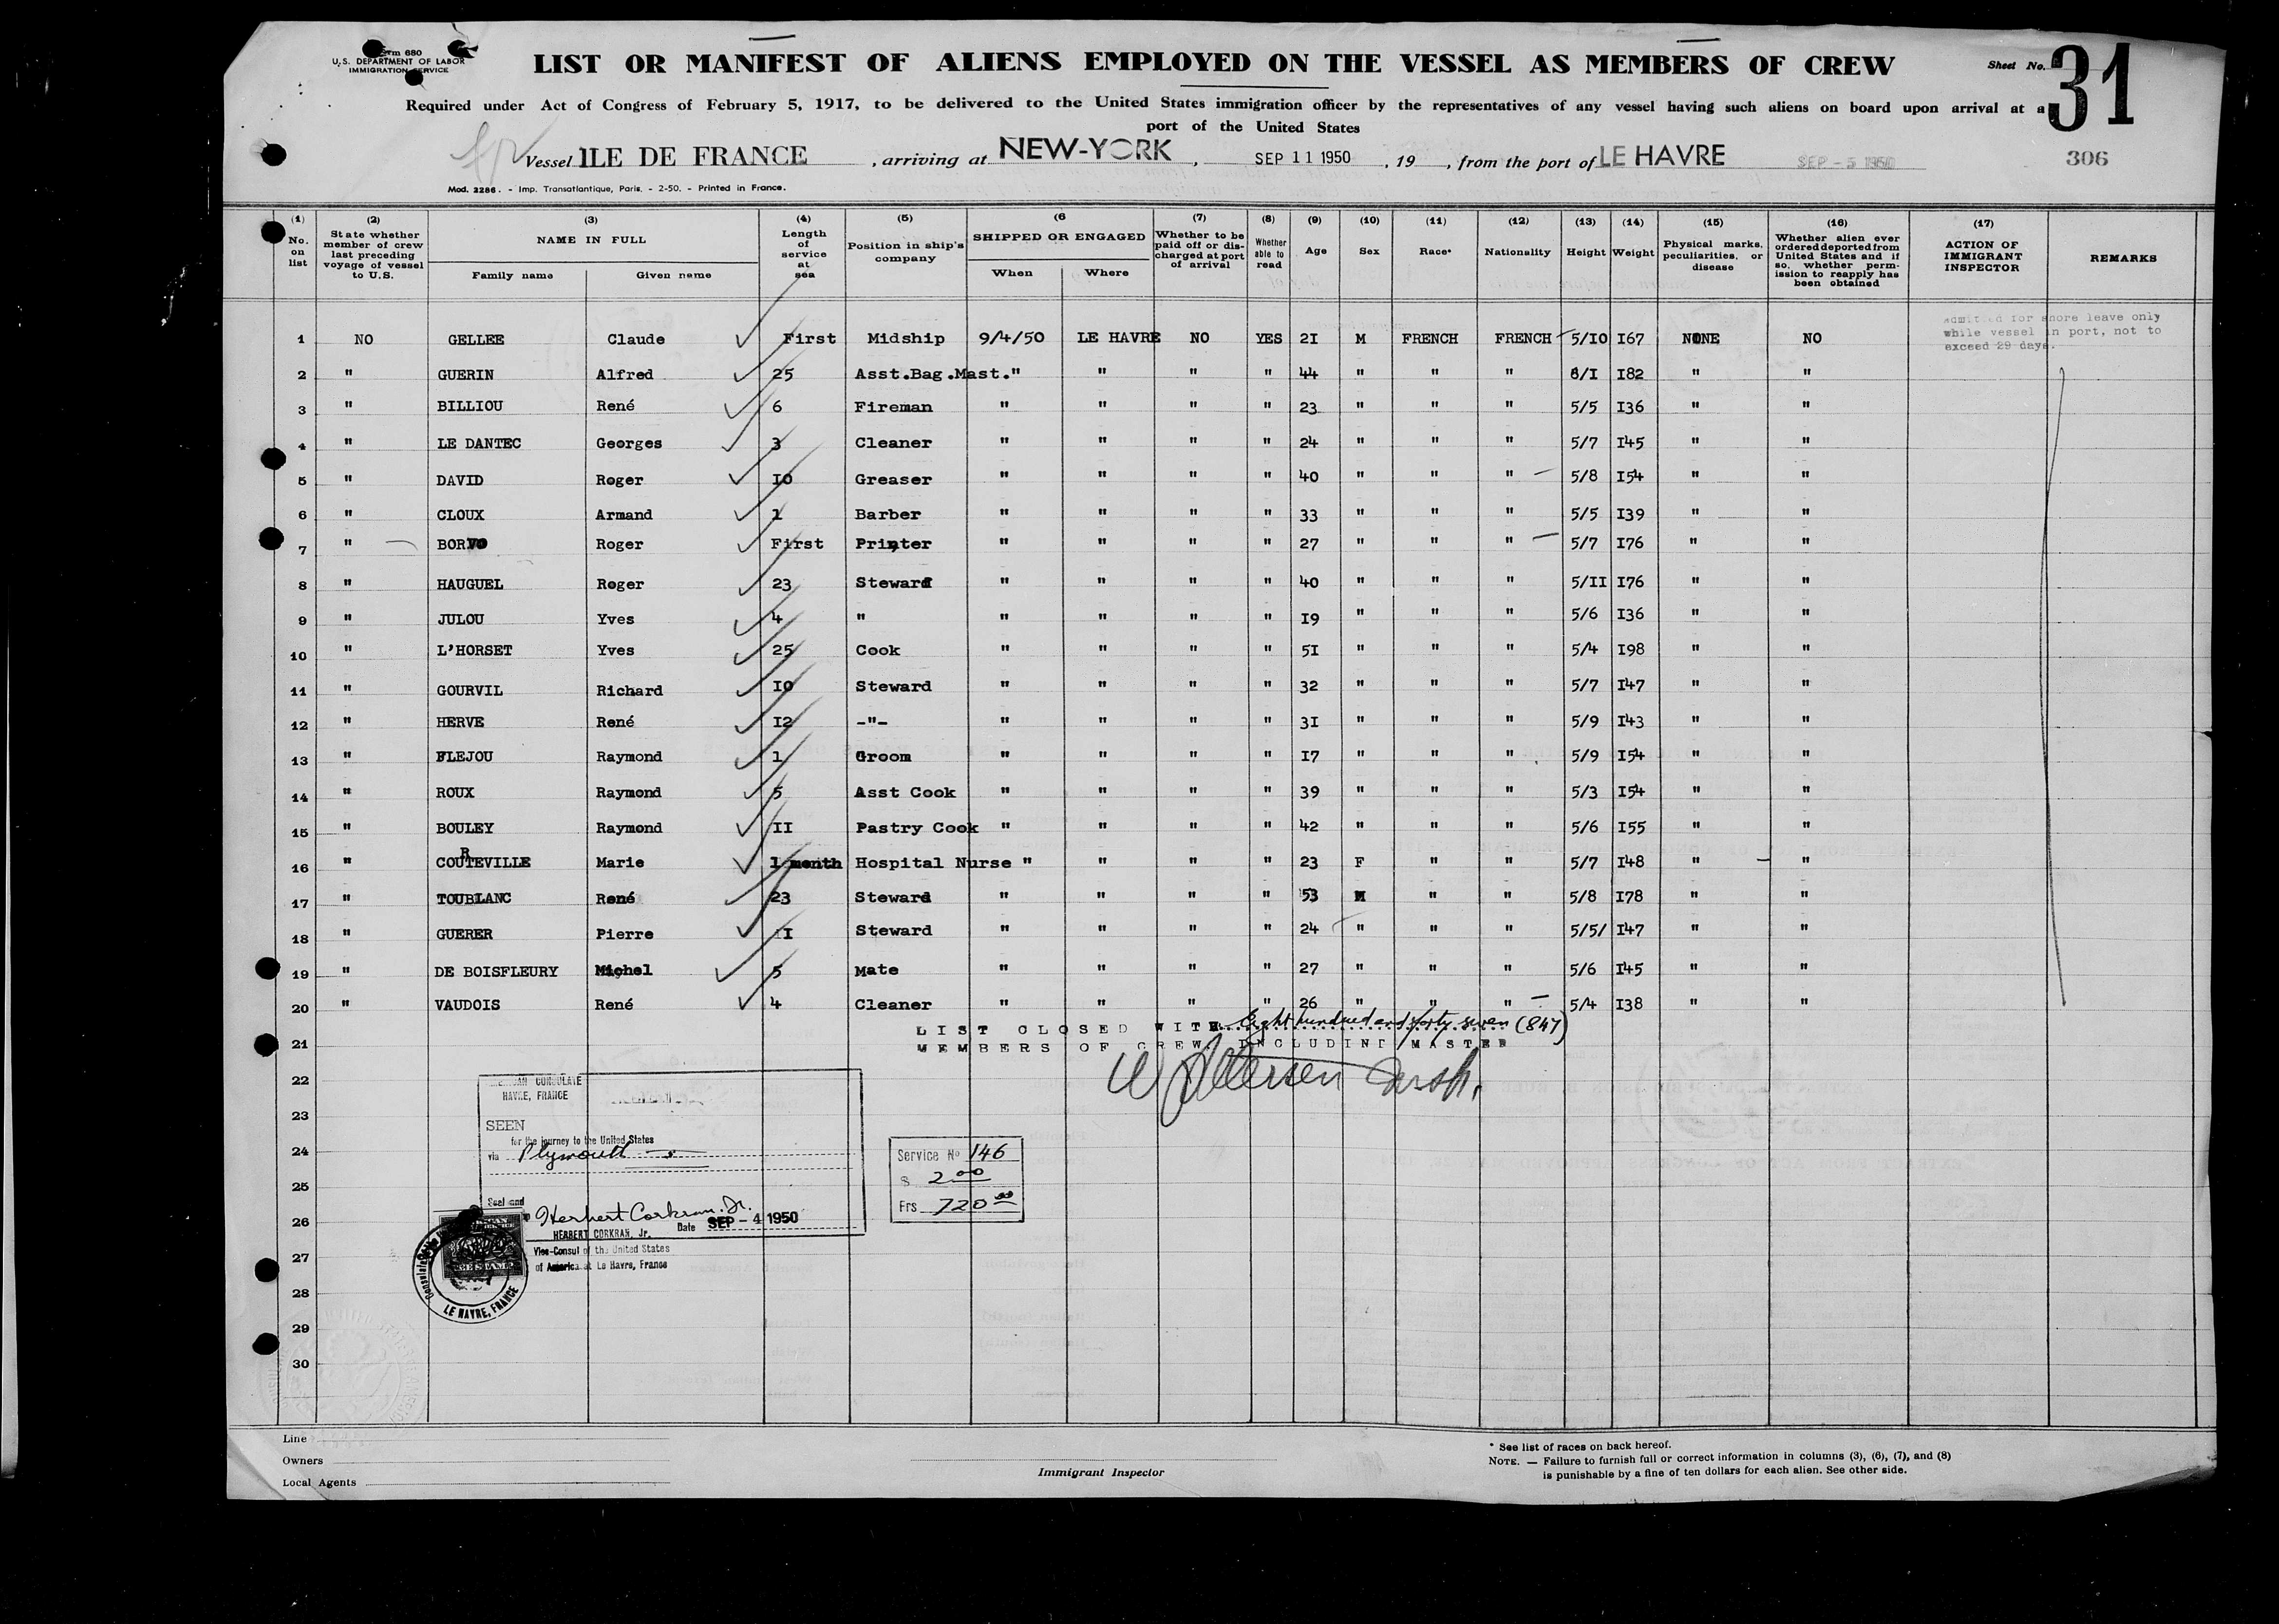 Form 680
U.S. DEPARTMENT OF LABOR
IMMIGRATION SERVICE
LIST OR MANIFEST OF ALIENS EMPLOYED ON THE VESSEL AS MEMBERS OF CREW
Sheet No. 31
Required under Act of Congress of February 5, 1917, to be delivered to the United States immigration officer by the representatives of any vessel having such aliens on board upon arrival at a
port of the United States
Vessel ILE DE FRANCE , arriving at NEW-YORK , SEP 11 1950 , 19 , from the port of LE HAVRE SEP - 5 1950 306
Mod. 2286. - Imp. Transatlantique, Paris. - 2-50. - Printed in France.
(1) No. on list (2) State whether member of crew last preceding voyage of vessel to U.S. (3) NAME IN FULL Family name Given name (4) Length of service at sea (5) Position in ship's company (6 SHIPPED OR ENGAGED When Where (7) Whether to be paid off or discharged at port of arrival (8) Whether able to read (9) Age (10) Sex (11) Race* (12) Nationality (13) Height (14) Weight (15) Physical marks, peculiarities, or disease (16) Whether alien ever ordered deported from United States and if so, whether permission to reapply has been obtained (17) ACTION OF IMMIGRANT INSPECTOR REMARKS
1 NO GELLEE Claude First Midship 9/4/50 LE HAVRE NO YES 2I M FRENCH FRENCH 5/IO I67 NONE NO admitted for shore leave only while vessel in port, not to exceed 29 days.
2 " GUERIN Alfred 25 Asst.Bag.Mast. " " " " 44 " " " 6/I I82 " "
3 " BILLIOU René 6 Fireman " " " " 23 " " " 5/5 I36 " "
4 " LE DANTEC Georges 3 Cleaner " " " " 24 " " " 5/7 I45 " "
5 " DAVID Roger IO Greaser " " " " 40 " " " 5/8 I54 " "
6 " CLOUX Armand 1 Barber " " " " 33 " " " 5/5 I39 " "
7 " BORVO Roger First Printer " " " " 27 " " " 5/7 I76 " "
8 " HAUGUEL Roger 23 Steward " " " " 40 " " " 5/II I76 " "
9 " JULOU Yves 4 " " " " " I9 " " " 5/6 I36 " "
10 " L'HORSET Yves 25 Cook " " " " 5I " " " 5/4 I98 " "
11 " GOURVIL Richard IO Steward " " " " 32 " " " 5/7 I47 " "
12 " HERVE René I2 -"- " " " " 3I " " " 5/9 I43 " "
13 " FLEJOU Raymond 1 Groom " " " " I7 " " " 5/9 I54 " "
14 " ROUX Raymond 5 Asst Cook " " " " 39 " " " 5/3 I54 " "
15 " BOULEY Raymond II Pastry Cook " " " " 42 " " " 5/6 I55 " "
16 " COURTEVILLE Marie 1 month Hospital Nurse " " " " 23 F " " 5/7 I48 " "
17 " TOUBLANC René 23 Steward " " " " 53 M " " 5/8 I78 " "
18 " GUERER Pierre II Steward " " " " 24 " " " 5/5/ I47 " "
19 " DE BOISFLEURY Michel 5 Mate " " " " 27 " " " 5/6 I45 " "
20 " VAUDOIS René 4 Cleaner " " " " 26 " " " 5/4 I38 " "
LIST CLOSED WITH Eight hundred and forty seven (847)
21 MEMBERS OF CREW, INCLUDING MASTER
22
23
24
25
26
27
28
29
30
AMERICAN CONSULATE
HAVRE, FRANCE
SEEN
for the journey to the United States
via Plymouth
Seal and
Herbert Corkran. Jr.
Date SEP - 4 1950
HERBERT CORKRAN, Jr.
Vice-Consul of the United States
of America at Le Havre, France
LE HAVRE, FRANCE
Service No 146
$ 2.00
Frs 720.00
Line
Owners
Local Agents
Immigrant Inspector
* See list of races on back hereof.
NOTE. — Failure to furnish full or correct information in columns (3), (6), (7), and (8)
is punishable by a fine of ten dollars for each alien. See other side.